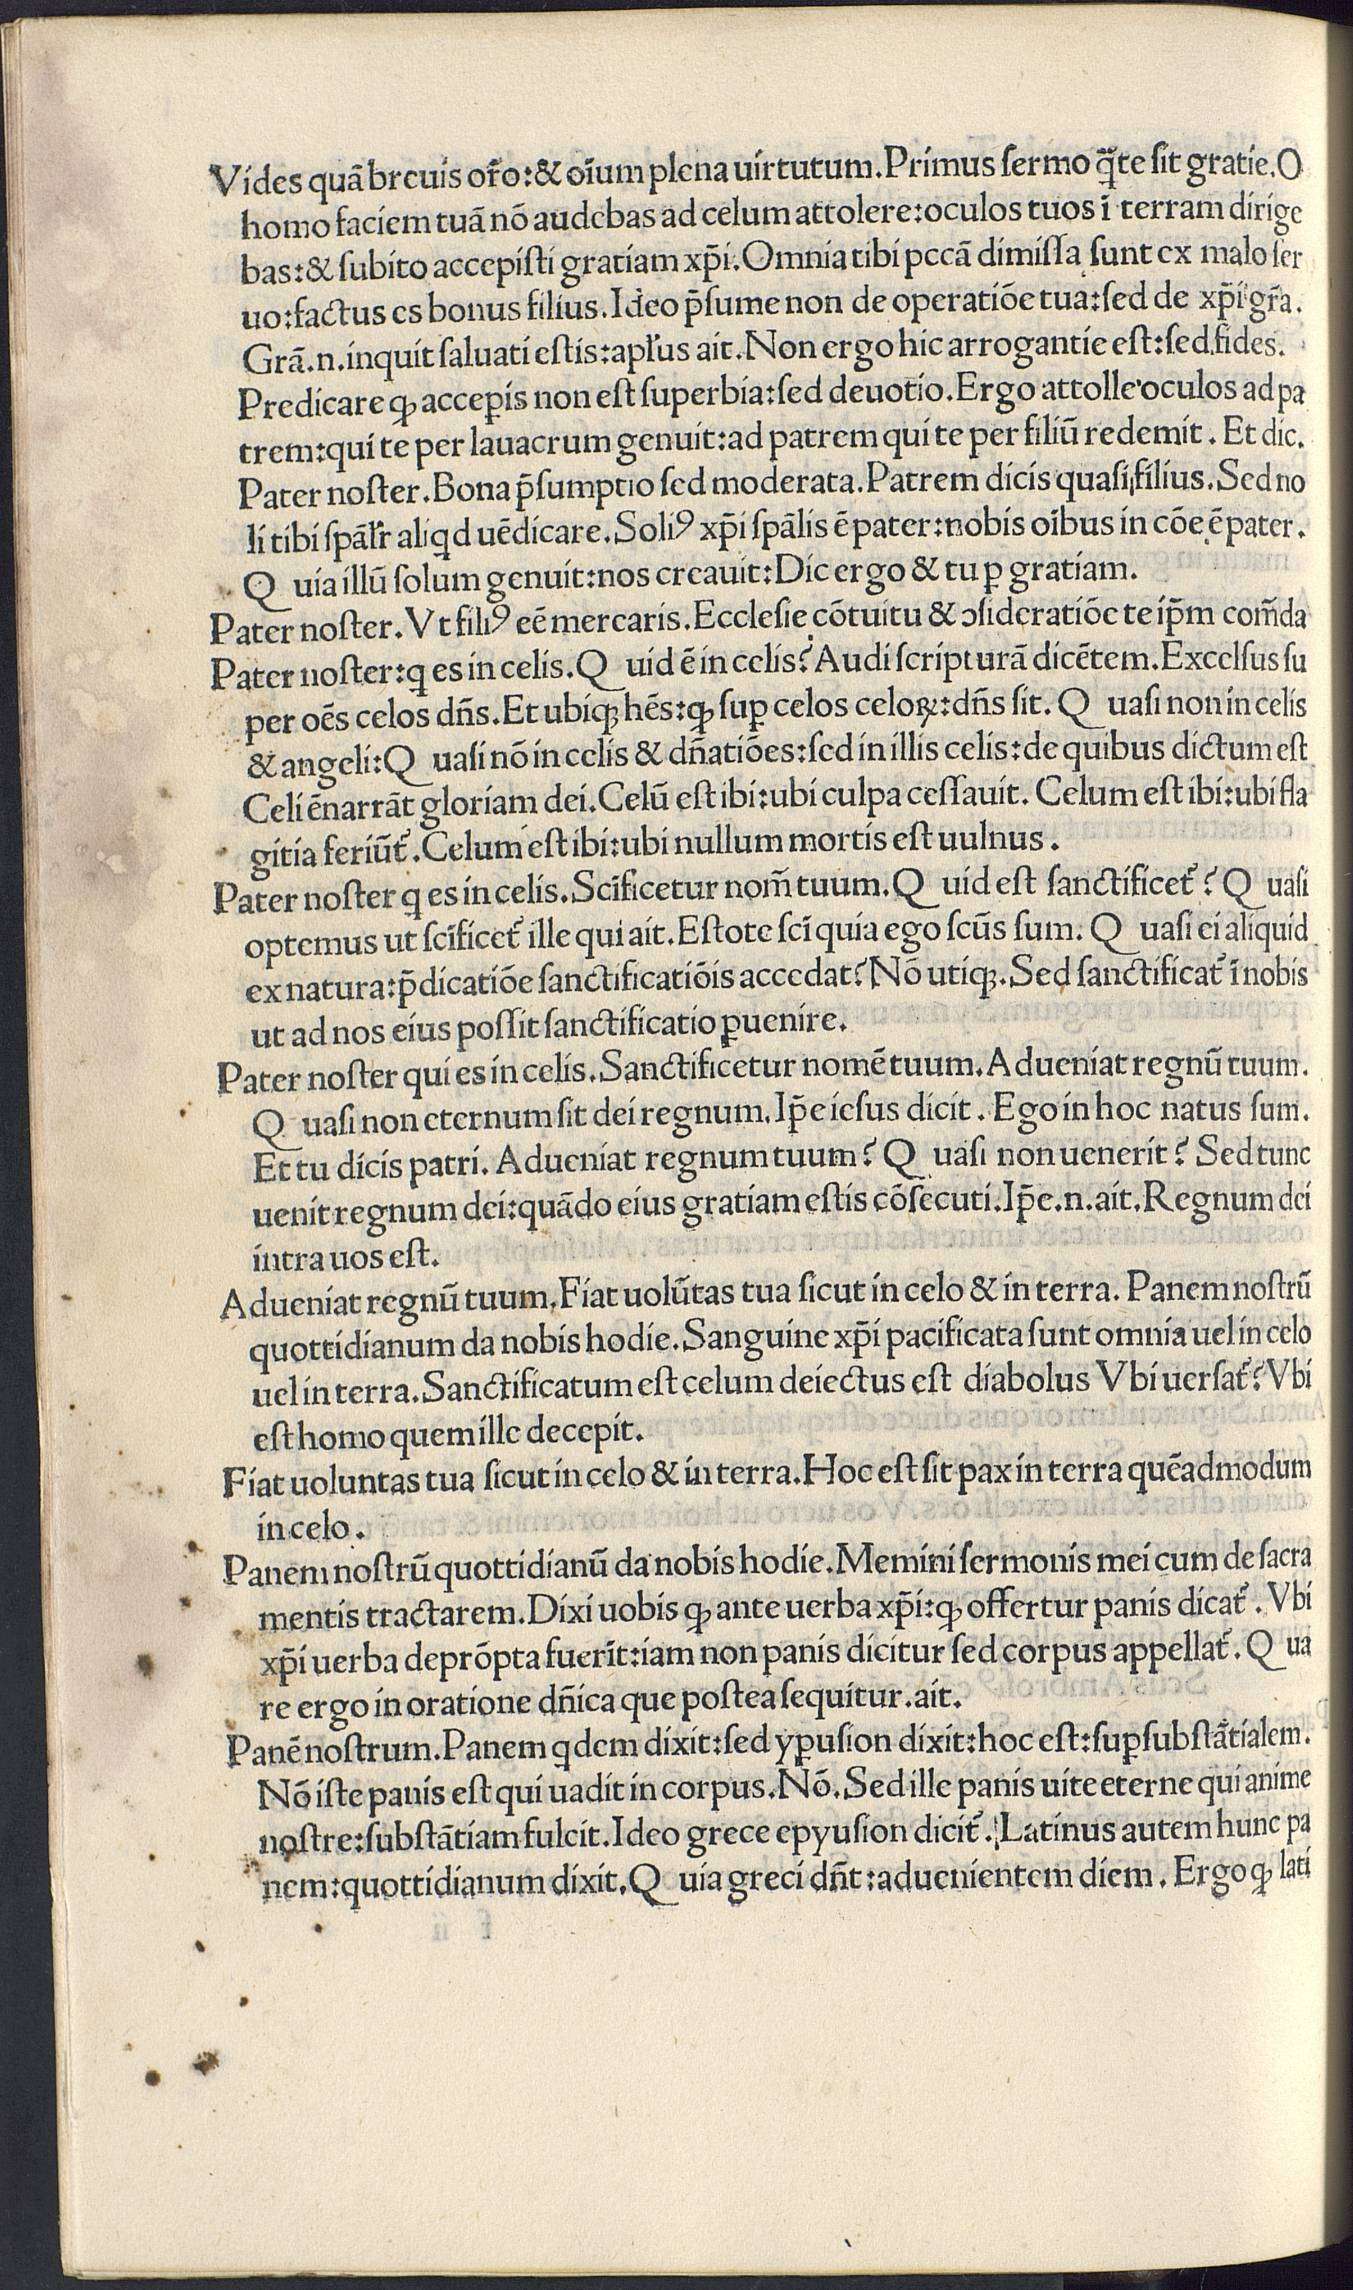 Vides quā breuis or̄o:& oīum plena uirtutum.Primus ſermo q̄te ſit gratie.O
homo faciem tuā nō audebas ad celum attolere:oculos tuos ī terram dirige
bas:& ſubito accepiſti gratiam xp̄i.Omnia tibi pccā dimiſſa ſunt ex malo ſer
uo:factus es bonus filius.Ideo p̄ſume non de operatiōe tua:ſed de xp̄i gr̄a.
Grā.n.inquit ſaluati eſtis:apłus ait.Non ergo hic arrogantie eſt:ſed fides.
Predicare ꝙ accepis non eſt ſuperbia:ſed deuotio.Ergo attolle oculos ad pa
trem:qui te per lauacrum genuit:ad patrem qui te per filiū redemit. Et dic.
Pater noſter.Bona p̄ſumptio ſed moderata.Patrem dicis quaſi filius.Sed no
li tibi ſpāłr aliqd uēdicare.Soliꝰ xp̄i ſpālis ē pater:nobis oībus in cōe ē pater.
Q uia illū ſolum genuit:nos creauit:Dic ergo & tu ꝑ gratiam.
Pater noſter.Vt filiꝰ eē mercaris.Eccleſie cōtuitu & ↄſideratiōe te ip̄m com̄da
Pater noſter:q es in celis.Q uid ē in celis? Audi ſcripturā dicētem.Excelſus ſu
per oēs celos dn̄s.Et ubiqꝫ hēs:ꝙ ſuꝑ celos celoꝝ:dn̄s ſit.Q uaſi non in celis
& angeli:Q uaſi nō in celis & dn̄atiōes:ſed in illis celis:de quibus dictum eſt
Celi ēnarrāt gloriam dei.Celū eſt ibi:ubi culpa ceſſauit. Celum eſt ibi:ubi fla
gitia feriūt̉.Celum eſt ibi:ubi nullum mortis eſt uulnus.
Pater noſter q es in celis.Scīficetur nom̄ tuum.Q uid eſt ſanctificet̉? Q uaſi
optemus ut ſcīficet̉ ille qui ait.Eſtote ſcī quia ego ſcūs ſum.Q uaſi ei aliquid
ex natura:p̄dicatiōe ſanctificatiōis accedat? Nō utiqꝫ.Sed ſanctificat̉ ī nobis
ut ad nos eius poſſit ſanctificatio ꝑuenire.
Pater noſter qui es in celis.Sanctificetur nomē tuum.Adueniat regnū tuum.
Q uaſi non eternum ſit dei regnum.Ip̄e ieſus dicit. Ego in hoc natus ſum.
Et tu dicis patri. Adueniat regnum tuum? Q uaſi non uenerit? Sed tunc
uenit regnum dei:quādo eius gratiam eſtis cōſecuti.Ip̄e.n.ait.Regnum dei
intra uos eſt.
Adueniat regnū tuum.Fiat uolūtas tua ſicut in celo & in terra. Panem noſtrū
quottidianum da nobis hodie.Sanguine xp̄i pacificata ſunt omnia uel in celo
uel in terra.Sanctificatum eſt celum deiectus eſt diabolus Vbi uerſat̉? Vbi
eſt homo quem ille decepit.
Fiat uoluntas tua ſicut in celo & in terra.Hoc eſt ſit pax in terra quēadmodum
in celo.
Panem noſtrū quottidianū da nobis hodie.Memini ſermonis mei cum de ſacra
mentis tractarem.Dixi uobis ꝙ ante uerba xp̄i:ꝙ offertur panis dicat̉. Vbi
xp̄i uerba deprōpta fuerīt:iam non panis dicitur ſed corpus appellat̉.Q ua
re ergo in oratione dn̄ica que poſtea ſequitur.ait.
Panē noſtrum.Panem qdem dixit:ſed yꝑuſion dixit:hoc eſt:ſuꝑſubſtātialem.
Nō iſte panis eſt qui uadit in corpus.Nō.Sed ille panis uite eterne qui anime
noſtre:ſubſtātiam fulcit.Ideo grece epyuſion dicit̉. Latinus autem hunc pa
nem:quottidianum dixit.Q uia greci dn̄t:aduenientem diem. Ergo ꝙ lati